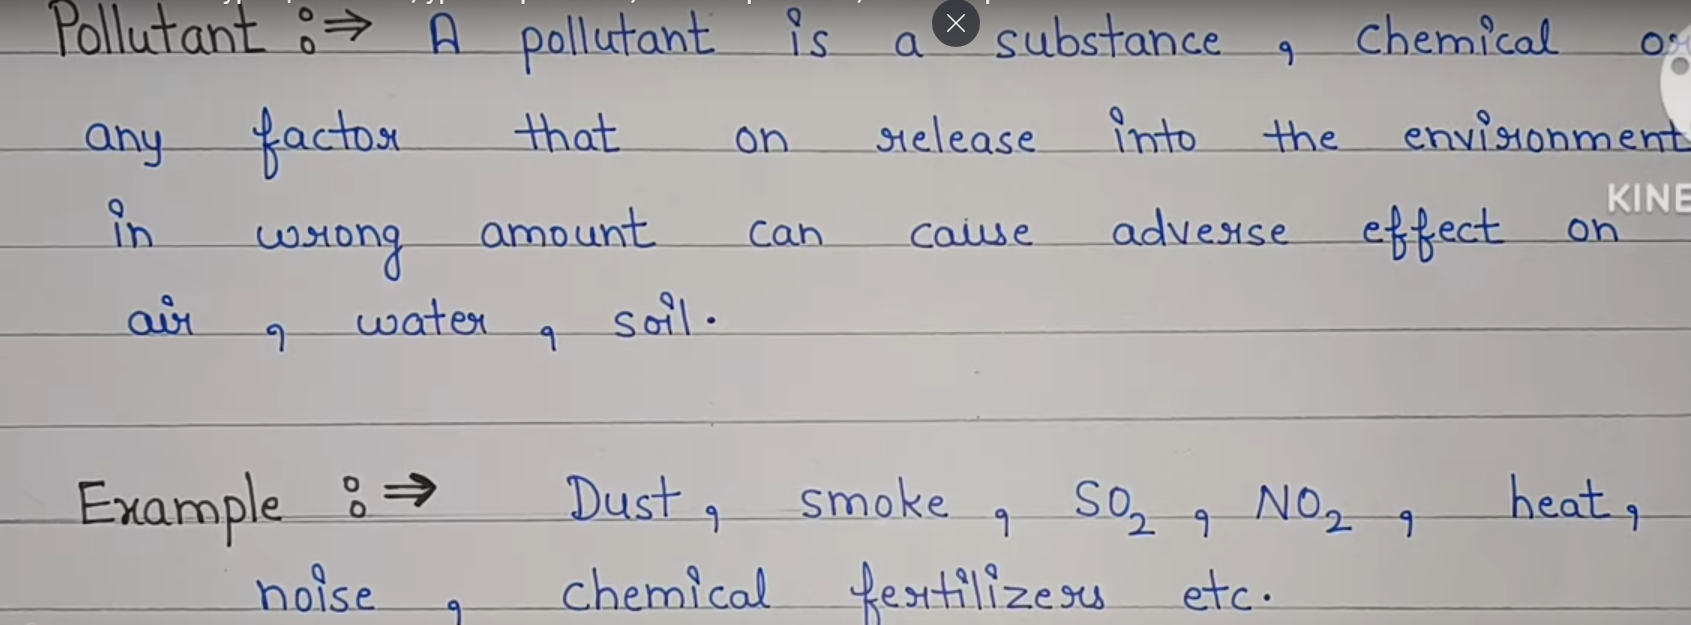 Pollutant :⇒ A pollutant is a substance, chemical or
any factor that on release into the environment
KINE
in wrong amount can cause adverse effect on
air, water, soil.
Example :⇒ Dust, smoke, SO₂, NO₂, heat,
noise, chemical fertilizers etc.